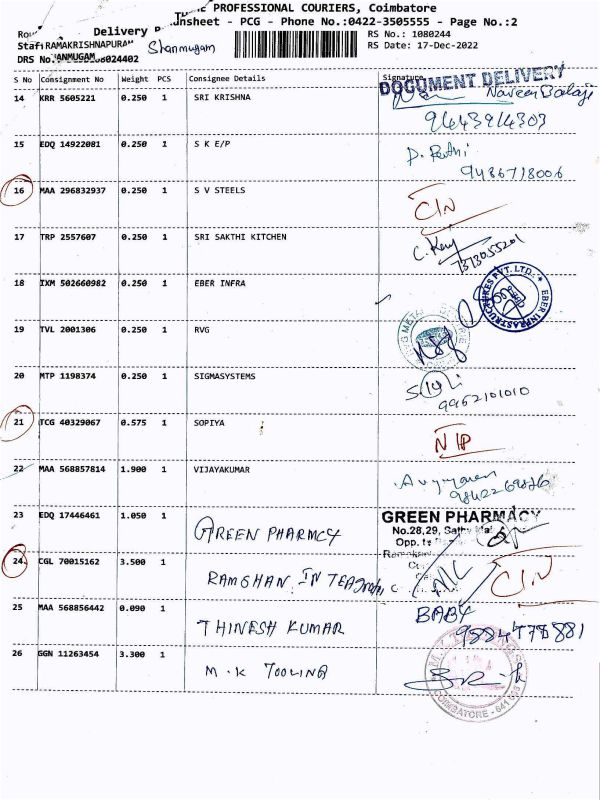 THE PROFESSIONAL COURIERS, Coimbatore
Delivery Runsheet - PCG - Phone No.:0422-3505555 - Page No.:2
RAMAKRISHNAPURAM Shanmugam RS No.: 1080244
RS Date: 17-Dec-2022
DRS No.
S No Consignment No Weight PCS Consignee Details Signature
DOCUMENT DELIVERY
14 KRR 5605221 0.250 1 SRI KRISHNA Naveen Balaji
9443914303
15 EDQ 14922081 0.250 1 S K E/P
9486718006
16 MAA 296832937 0.250 1 S V STEELS C/N
17 TRP 2557607 0.250 1 SRI SAKTHI KITCHEN
7373055201
18 IXM 502660982 0.250 1 EBER INFRA
EBER INFRASTRUCTURES PVT. LTD.
19 TVL 2001306 0.250 1 RVG
20 MTP 1198374 0.250 1 SIGMASYSTEMS
9962101010
21 TCG 40329067 0.575 1 SOPIYA N/P
22 MAA 568857814 1.900 1 VIJAYAKUMAR
23 EDQ 17446461 1.050 1 GREEN PHARMCY GREEN PHARMACY
No.28,29, Sathy
Opp.
24 CGL 70015162 3.500 1 RAMGHAN C/N
25 MAA 568856442 0.090 1 THINESH KUMAR BABY
26 GGN 11263454 3.300 1 M.K TOOLING
COIMBATORE - 641